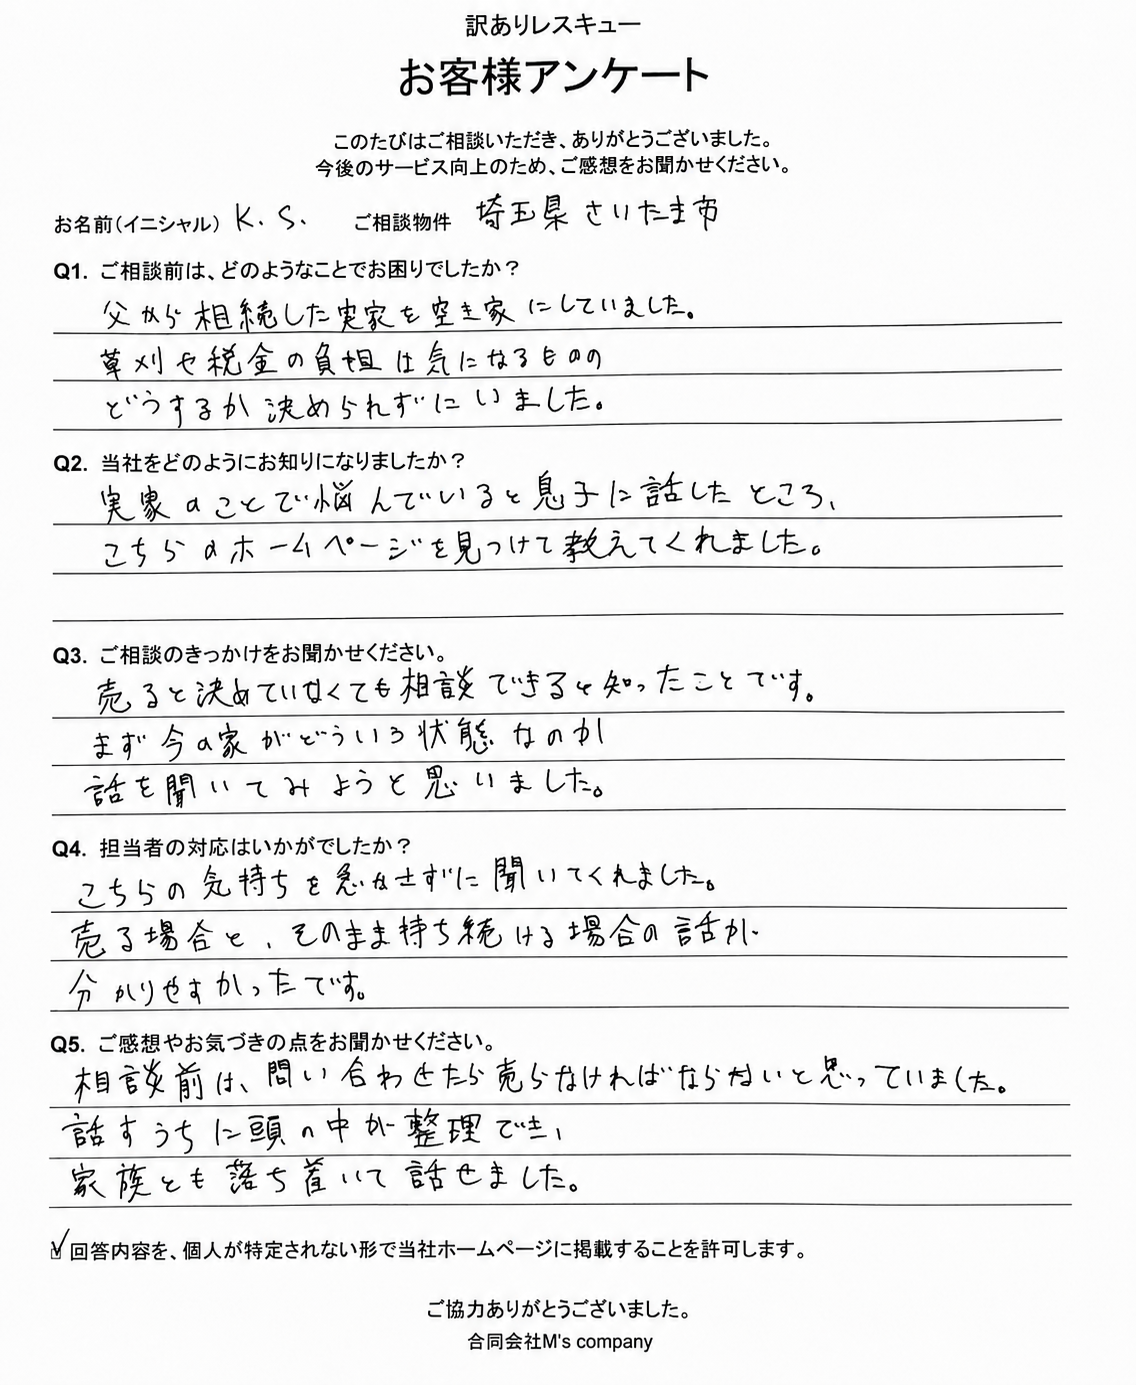 訳ありレスキュー
お客様アンケート
このたびはご相談いただき、ありがとうございました。
今後のサービス向上のため、ご感想をお聞かせください。
お名前(イニシャル) K. S. ご相談物件 埼玉県さいたま市
Q1. ご相談前は、どのようなことでお困りでしたか？
父から相続した実家を空き家にしていました。
草刈や税金の負担は気になるものの
どうするか決められずにいました。
Q2. 当社をどのようにお知りになりましたか？
実家のことで悩んでいると息子に話したところ、
こちらのホームページを見つけて教えてくれました。
Q3. ご相談のきっかけをお聞かせください。
売ると決めていなくても相談できると知ったことです。
まず今の家がどういう状態なのか
話を聞いてみようと思いました。
Q4. 担当者の対応はいかがでしたか？
こちらの気持ちを急かさずに聞いてくれました。
売る場合と、そのまま持ち続ける場合の話が
分かりやすかったです。
Q5. ご感想やお気づきの点をお聞かせください。
相談前は、問い合わせたら売らなければならないと思っていました。
話すうちに頭の中が整理でき、
家族とも落ち着いて話せました。
☑回答内容を、個人が特定されない形で当社ホームページに掲載することを許可します。
ご協力ありがとうございました。
合同会社M's company